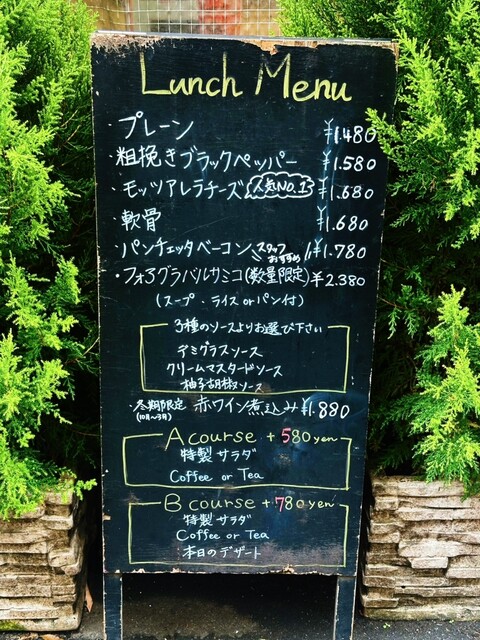 Lunch Menu
・プレーン ¥1.480
・粗挽きブラックペッパー ¥1.580
・モッツアレラチーズ 人気NO.1 ¥1.680
・軟骨 ¥1.680
・パンチェッタベーコン スタッフおすすめ ¥1.780
・フォアグラバルサミコ(数量限定) ¥2.380
(スープ、ライスorパン付)
3種のソースよりお選び下さい
デミグラスソース
クリームマスタードソース
柚子胡椒ソース
冬期限定 (10月〜3月) 赤ワイン煮込み ¥1.880
A course + 580 yen
特製サラダ
Coffee or Tea
B course + 780 yen
特製サラダ
Coffee or Tea
本日のデザート